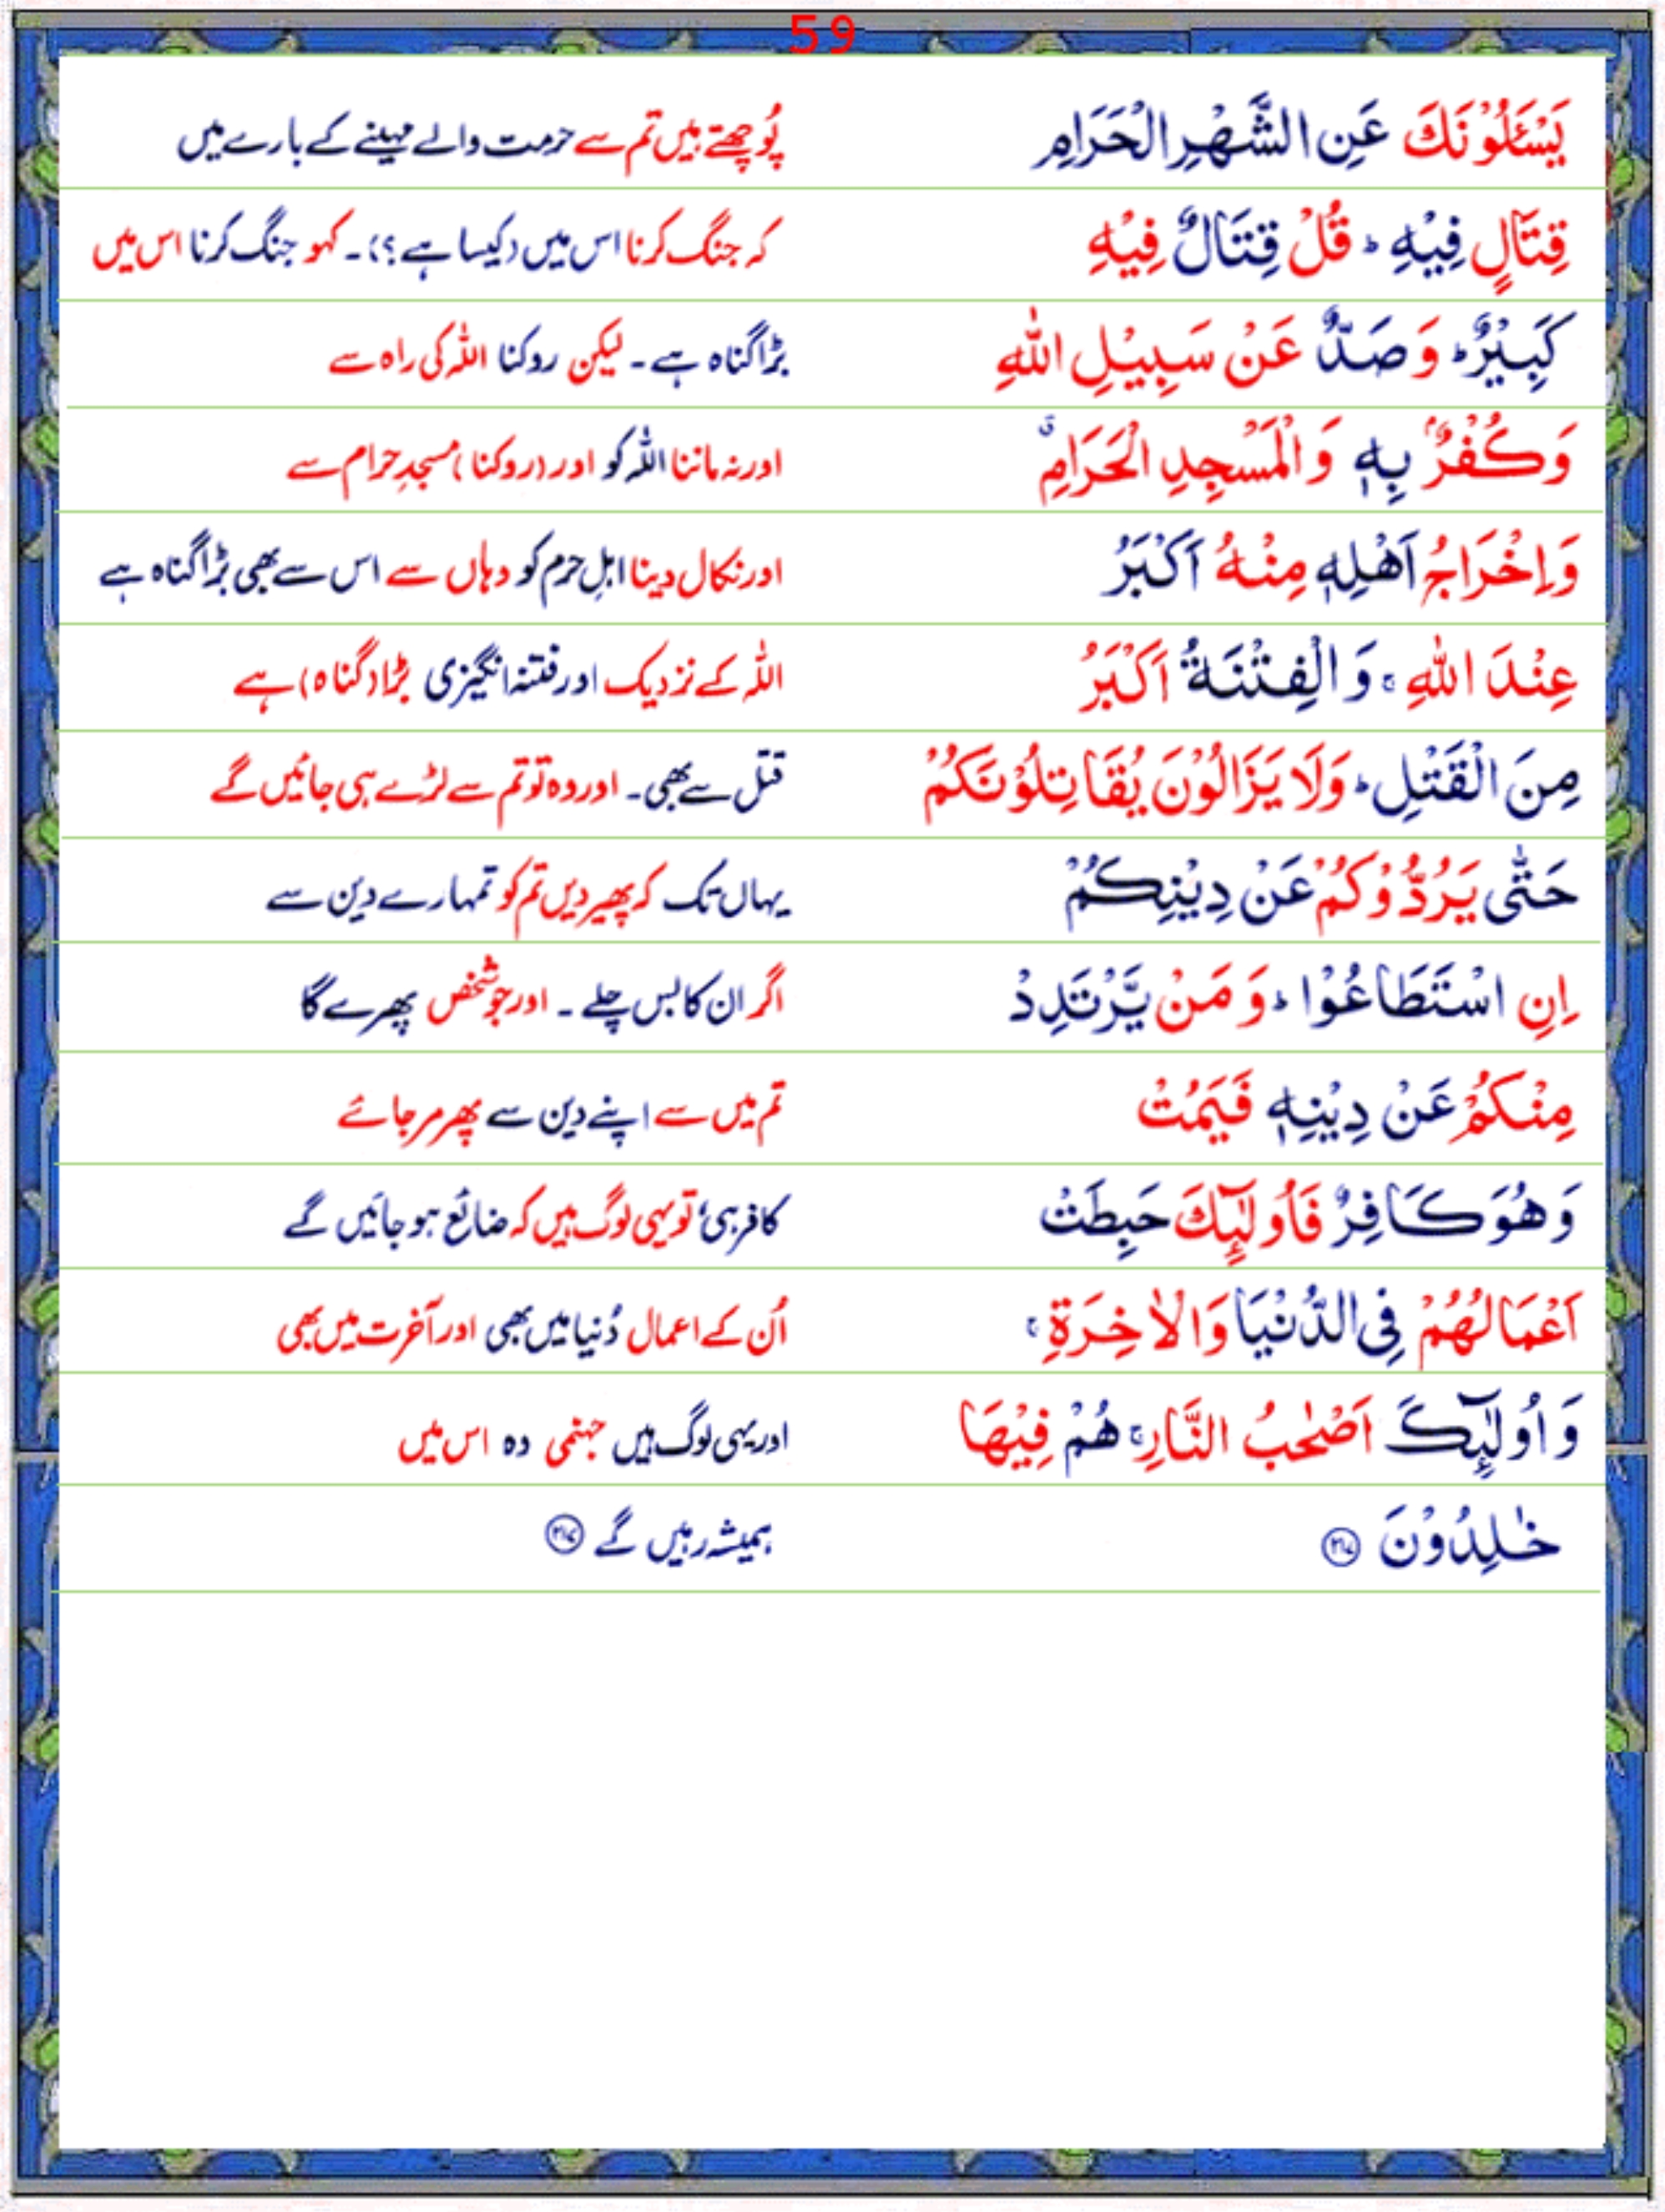 59
يَسْـَٔلُوْنَكَ عَنِ الشَّهْرِ الْحَرَامِ پُوچھتے ہیں تم سے حرمت والے مہینے کے بارے میں
قِتَالٍ فِيْهِ ؕ قُلْ قِتَالٌ فِيْهِ کہ جنگ کرنا اس میں (کیسا ہے؟)۔ کہو جنگ کرنا اس میں
كَبِيْرٌ ؕ وَصَدٌّ عَنْ سَبِيْلِ اللّٰهِ بڑا گناہ ہے۔ لیکن روکنا اللہ کی راہ سے
وَكُفْرٌۢ بِهٖ وَالْمَسْجِدِ الْحَرَامِ ۗ اور نہ ماننا اللہ کو اور (روکنا) مسجدِ حرام سے
وَاِخْرَاجُ اَهْلِهٖ مِنْهُ اَكْبَرُ اور نکال دینا اہلِ حرم کو وہاں سے اس سے بھی بڑا گناہ ہے
عِنْدَ اللّٰهِ ۚ وَالْفِتْنَةُ اَكْبَرُ اللہ کے نزدیک اور فتنہ انگیزی بڑا (گناہ) ہے
مِنَ الْقَتْلِ ؕ وَلَا يَزَالُوْنَ يُقَاتِلُوْنَكُمْ قتل سے بھی۔ اور وہ تو تم سے لڑے ہی جائیں گے
حَتّٰى يَرُدُّوْكُمْ عَنْ دِيْنِكُمْ یہاں تک کہ پھیر دیں تم کو تمہارے دین سے
اِنِ اسْتَطَاعُوْا ؕ وَمَنْ يَّرْتَدِدْ اگر ان کا بس چلے۔ اور جو شخص پھرے گا
مِنْكُمْ عَنْ دِيْنِهٖ فَيَمُتْ تم میں سے اپنے دین سے پھر مر جائے
وَهُوَ كَافِرٌ فَاُولٰٓئِكَ حَبِطَتْ کافر ہی، تو یہی لوگ ہیں کہ ضائع ہو جائیں گے
اَعْمَالُهُمْ فِى الدُّنْيَا وَالْاٰخِرَةِ ۚ اُن کے اعمال دُنیا میں بھی اور آخرت میں بھی
وَاُولٰٓئِكَ اَصْحٰبُ النَّارِ ۚ هُمْ فِيْهَا اور یہی لوگ ہیں جہنمی وہ اس میں
خٰلِدُوْنَ ۝۲۱۷ ہمیشہ رہیں گے ۝۲۱۷